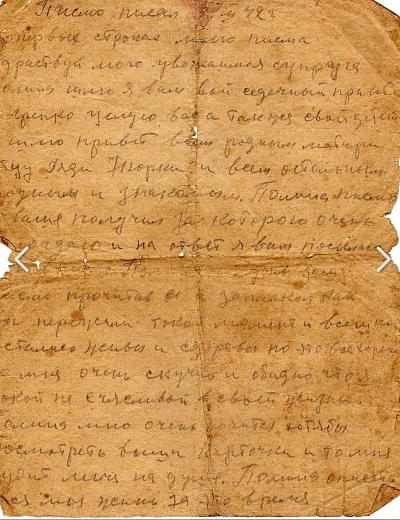 Письмо писал 42 г
первых строках моего писма
здраствуй моя уважаемая супруга
шлю я вам свой сердечный привет
крепко целую вас а также своих детей
шлю привет всем родным матери
Дяди и всем остальным
родным и знакомым. Полина писмо
ваше получил за которого очень
и на ответ я вам посылаю
писмо прочитав я заплакал как
вы пережили такой момент и все
остались живы и здоровы но это все хорошо
но мне очень скучно и обидно что я
такой не счасливый в своей жизни
Полина мне очень хочится хотябы
посмотреть ваши карточки и то мне
будит легче на душе. Полина
моя жизнь за это время